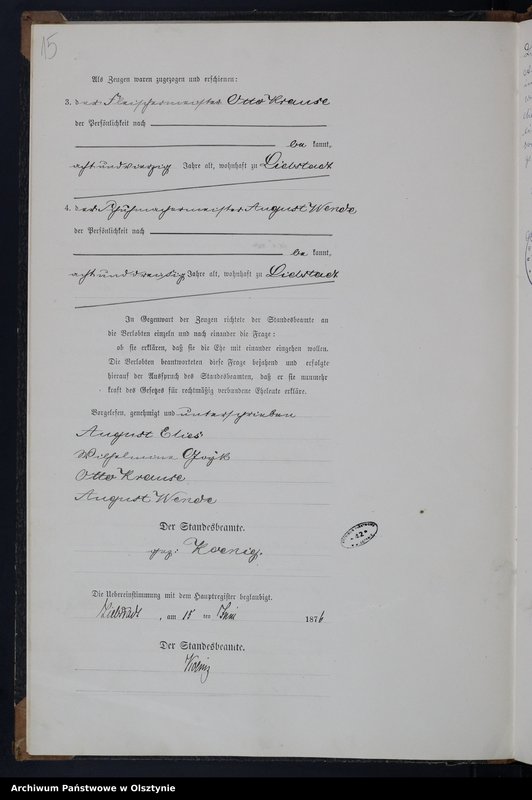 15
Als Zeugen waren zugezogen und erschienen:
3. der Fleischermeister Otto Krause
der Persönlichkeit nach
be kannt,
acht und vierzig Jahre alt, wohnhaft zu Liebstadt
4. der Schuhmachermeister August Wende
der Persönlichkeit nach
be kannt,
acht und dreißig Jahre alt, wohnhaft zu Liebstadt
In Gegenwart der Zeugen richtete der Standesbeamte an
die Verlobten einzeln und nach einander die Frage:
ob sie erklären, daß sie die Ehe mit einander eingehen wollen.
Die Verlobten beantworteten diese Frage bejahend und erfolgte
hierauf der Ausspruch des Standesbeamten, daß er sie nunmehr
kraft des Gesetzes für rechtmäßig verbundene Eheleute erkläre.
Vorgelesen, genehmigt und unterschrieben
August Elies
Wilhelmine
Otto Krause
August Wende
Der Standesbeamte.
gez: Koenig.
42
Die Uebereinstimmung mit dem Hauptregister beglaubigt.
Liebstadt, am 15 ten Juni 1876
Der Standesbeamte.
Koenig
Archiwum Państwowe w Olsztynie